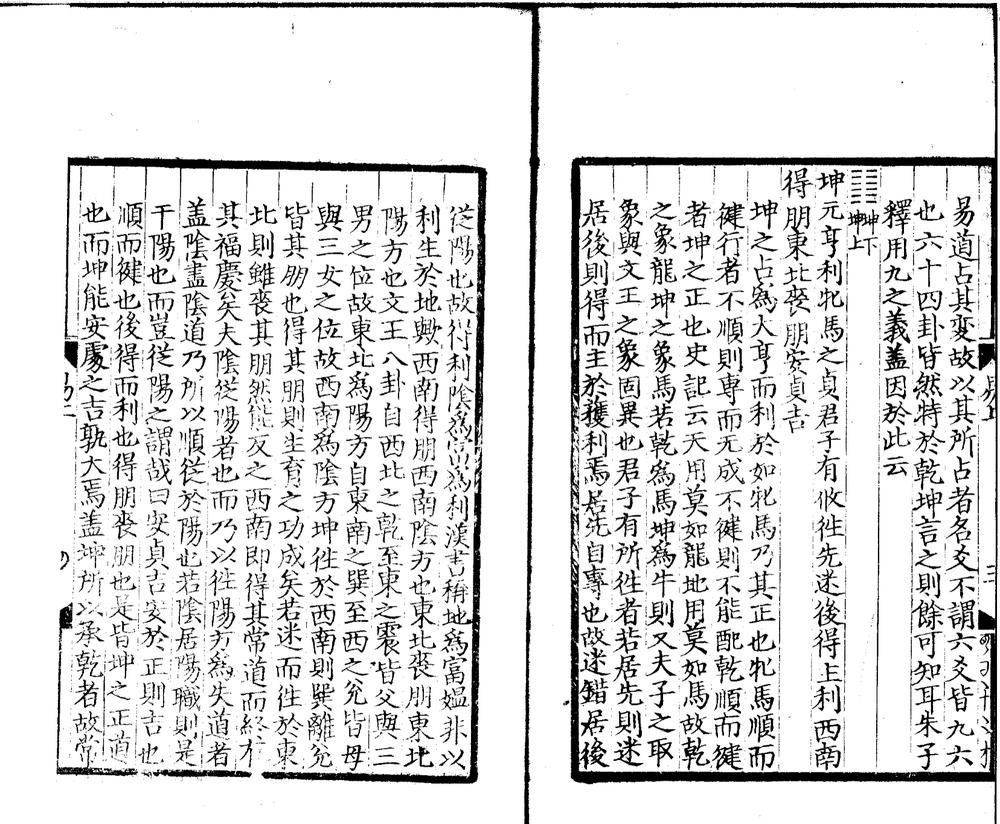 易道占其變故以其所占者名爻不謂六爻皆九六
也六十四卦皆然特於乾坤言之則餘可知耳朱子
釋用九之義蓋因於此云
坤下
坤上
坤元亨利牝馬之貞君子有攸往先迷後得主利西南
得朋東北喪朋安貞吉
坤之占爲大亨而利於如牝馬乃其正也牝馬順而
健行者不順則專而无成不健則不能配乾順而健
者坤之正也史記云天用莫如龍地用莫如馬故乾
之象龍坤之象馬若乾爲馬坤爲牛則又夫子之取
象與文王之象固異也君子有所往者若居先則迷
居後則得而主於獲利焉居先自專也故迷錯居後
從陽也故得利陰爲富爲利漢書稱地爲富媼非以
利生於地歟西南得朋西南陰方也東北喪朋東北
陽方也文王八卦自西北之乾至東之震皆父與三
男之位故東北爲陽方自東南之巽至西之兊皆母
與三女之位故西南爲陰方坤往於西南則巽離兊
皆其朋也得其朋則生育之功成矣若迷而往於東
北則雖喪其朋然能反之西南即得其常道而終有
其福慶矣夫陰從陽者也而乃以往陽方爲失道者
蓋陰盡陰道乃所以順從於陽也若陰居陽職則是
干陽也而豈從陽之謂哉曰安貞吉安於正則吉也
順而健也後得而利也得朋喪朋也是皆坤之正道
也而坤能安處之吉孰大焉蓋坤所以承乾者故常